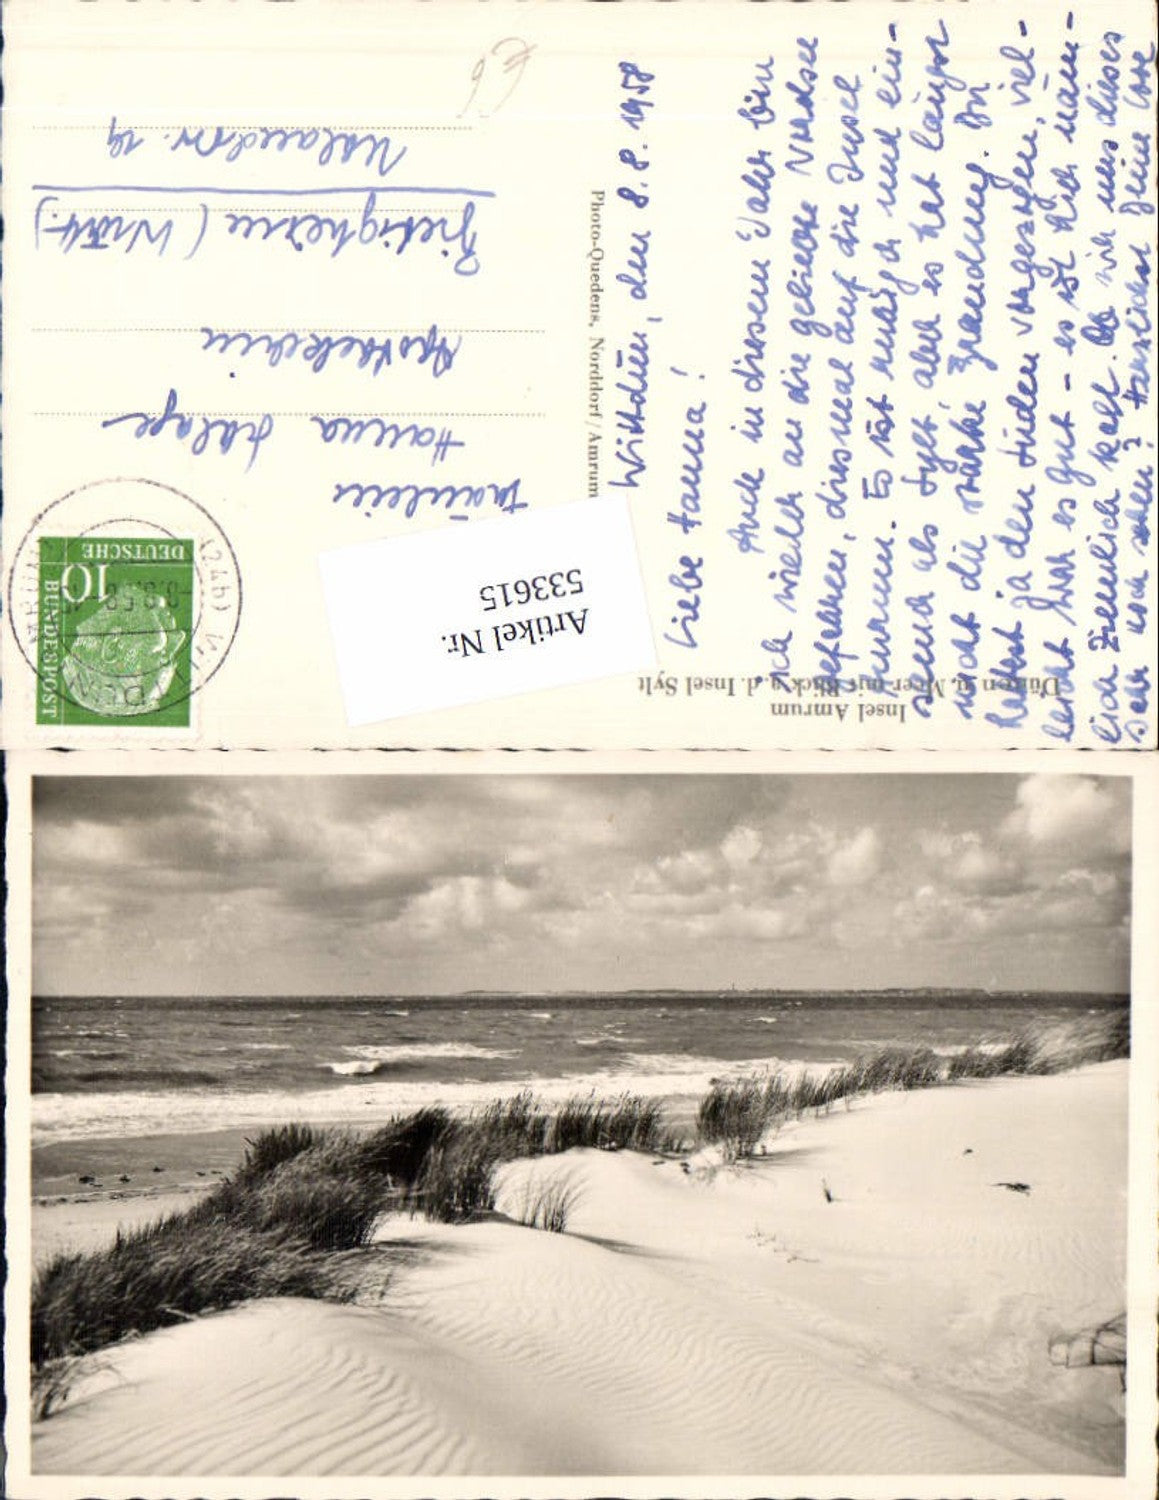 Insel Amrum
Dünen u. Meer mit Blick a. d. Insel Sylt
Photo-Quedens, Norddorf / Amrum
Wittdün, den 8. 8. 1958
Liebe Hanna!
Auch in diesem Jahr bin
ich wieder an die geliebte Nordsee
gefahren, diesmal auf die Insel
Amrum. Es ist ruhiger und ein-
samer als Sylt, aber es hat längst
nicht die starke Brandung. Du
hattest ja den Süden vorgezogen, viel-
leicht war es gut - es ist hier näm-
lich ziemlich kalt. Ob wir uns dieses
Jahr noch sehen? Herzlichst Deine
Fräulein
Hanna
Apothekerin
Bietigheim (Württ.)
Uhlandstr. 19
DEUTSCHE
BUNDESPOST
10
(24b)
8.8.58
Artikel Nr.
533615